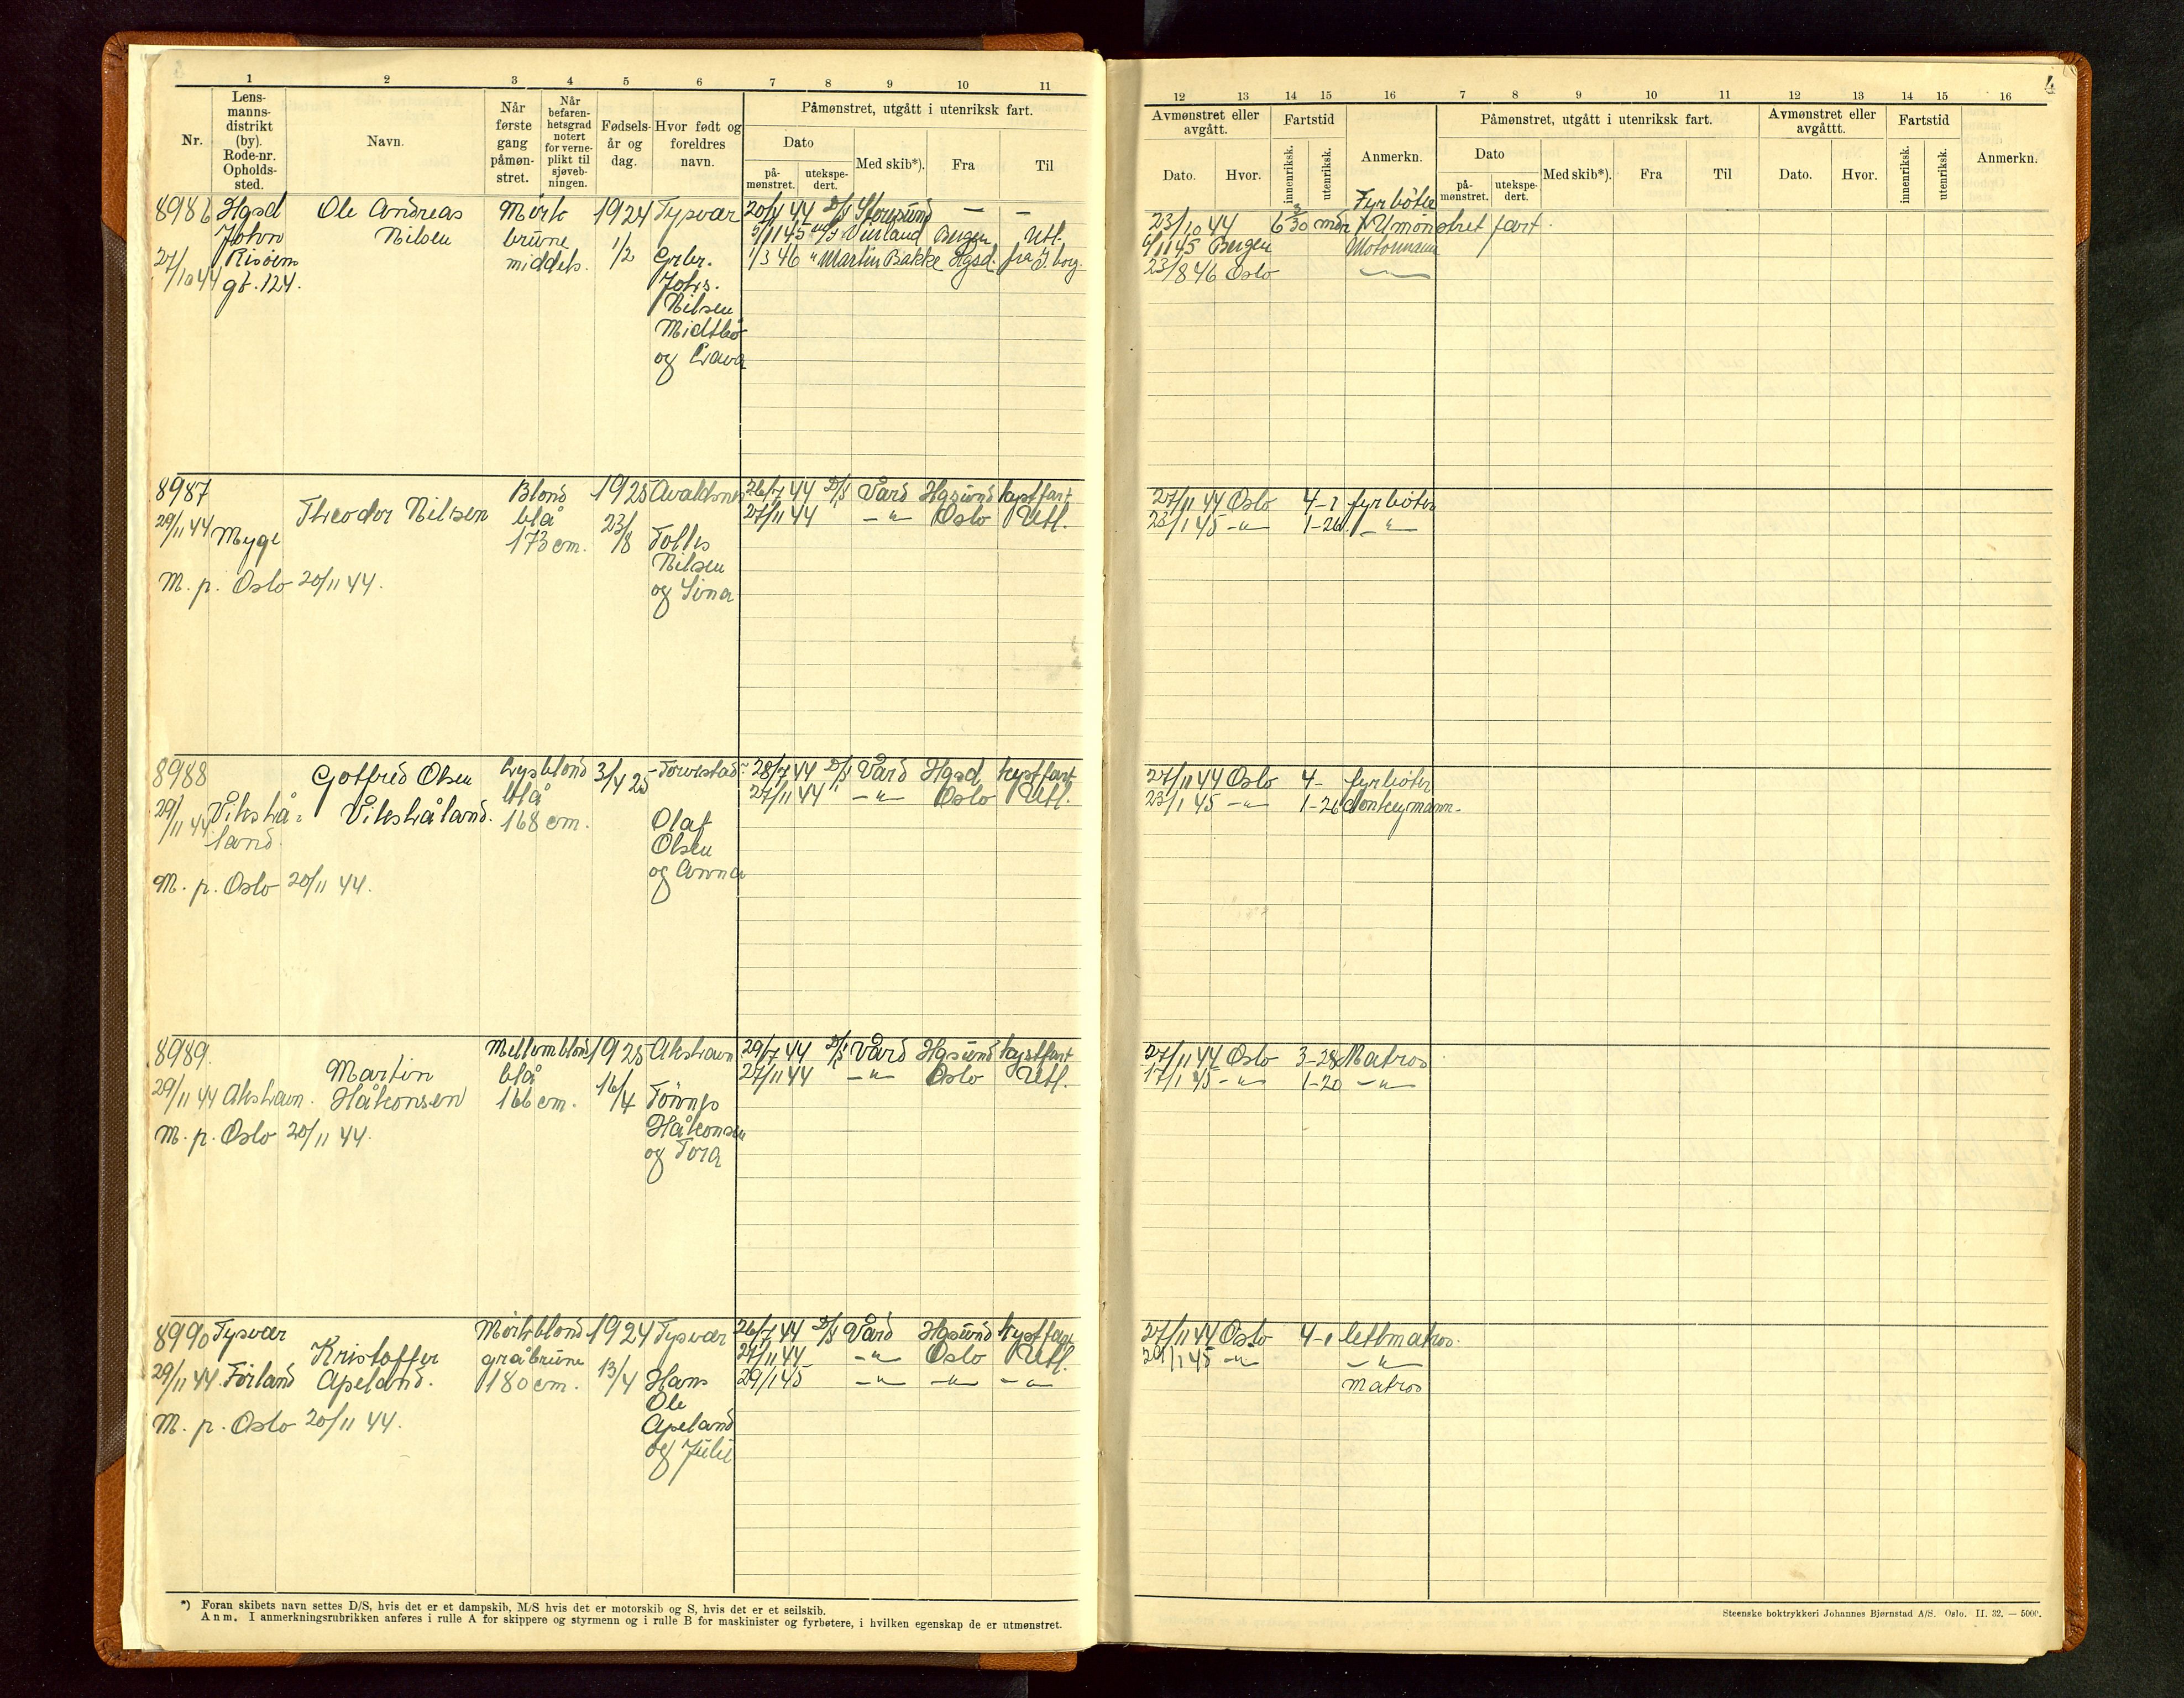 1 2 3 4 5 6 7 8 9 10 11
Nr.
Lens-
manns-
distrikt
(by).
Rode-nr.
Opholds-
sted.
Navn.
Når
første
gang
påmøn-
stret.
Når
befaren-
hetsgrad
notert
for verne-
plikt til
sjøveb-
ningen.
Fødsels-
år og
dag.
Hvor født og
foreldres
navn.
Påmønstret, utgått i utenriksk fart.
Dato
på-
mønstret.
utekspe-
dert.
Med skib*).
Fra
Til
12 13 14 15 16 7 8 9 10 11 12 13 14 15 16
4
Avmønstret eller
avgått.
Dato.
Hvor.
Fartstid
innenriksk.
utenriksk.
Anmerkn.
Påmønstret, utgått i utenriksk fart.
Dato
på-
mønstret.
utekspe-
dert.
Med skib*).
Fra
Til
Avmønstret eller
avgåttt.
Dato.
Hvor.
Fartstid
innenriksk.
utenriksk.
Anmerkn.
8986 Hgsd Ole Andreas Mørk 1924 Tysvær 20/4 44 D/S Storesund — —
John Nilsen brune 1/2 5/11 45 M/S Vinland Bergen Utl.
27/10 44 Risøens middels. Grbr. 1/3 46 " Martin Bakke Hgsd. fra
gt. 124. Johs.
Nilsen
Midtbø
og
Fyrbøter
23/10 44 6 3/30 mdr Umønstret fart.
6/11 45 Bergen Motormann
23/8 46 Oslo —
8987 Theodor Nilsen Blond 1925 Avaldsnes 26/7 44 D/S Vård Hgsund kystfart
29/11 44 Myge blå 23/8 27/11 44 — " — Oslo Utl.
173 cm. Tolles
Nilsen
M. p. Oslo 20/11 44. og Sina
27/11 44 Oslo 4–1 fyrbøter
23/1 45 — " — 1–26 — " —
8988 Gotfred Olsen Lysblond 3/4 25 Torvestad 28/7 44 D/S Vård Hgsd kystfart
29/11 44 Vikshå- Vikshåland. blå 27/11 44 — " — Oslo Utl.
land. 168 cm. Olaf
Olsen
M. p. Oslo 20/11 44. og Anna
27/11 44 Oslo 4– fyrbøter
23/1 45 — " — 1–26 donkeymann
8989. Martin Mellomblond 1925 Akshavn 29/7 44 D/S Vård Hgsund kystfart
29/11 44 Akshavn. Håkonsen blå 16/4 27/11 44 — " — Oslo Utl.
166 cm. Tønnes
M. p. Oslo 20/11 44. Håkonsen
og Tora
27/11 44 Oslo 3–28 Matros
17/1 45 — " — 1–20 — " —
8990 Tysvær Kristoffer Mørkblond 1924 Tysvær 26/7 44 D/S Vård Hgsund kystfart
29/11 44. Førland Apeland. gråbrune 13/4 27/11 44 — " — Oslo Utl.
180 cm. Hans 29/1 45 — " — — " — — " —
Ole
M. p. Oslo 20/11 44. Apeland
og Julie
27/11 44 Oslo 4–1 lettmatros.
29/1 45 — " — — " —
Matros
*) Foran skibets navn settes D/S, hvis det er et dampskib, M/S hvis det er motorskib og S, hvis det er et seilskib.
Anm. I anmerkningsrubrikken anføres i rulle A for skippere og styrmenn og i rulle B for maskinister og fyrbøtere, i hvilken egenskap de er utmønstret.
Steenske boktrykkeri Johannes Bjørnstad A/S. Oslo. II. 32. — 5000.